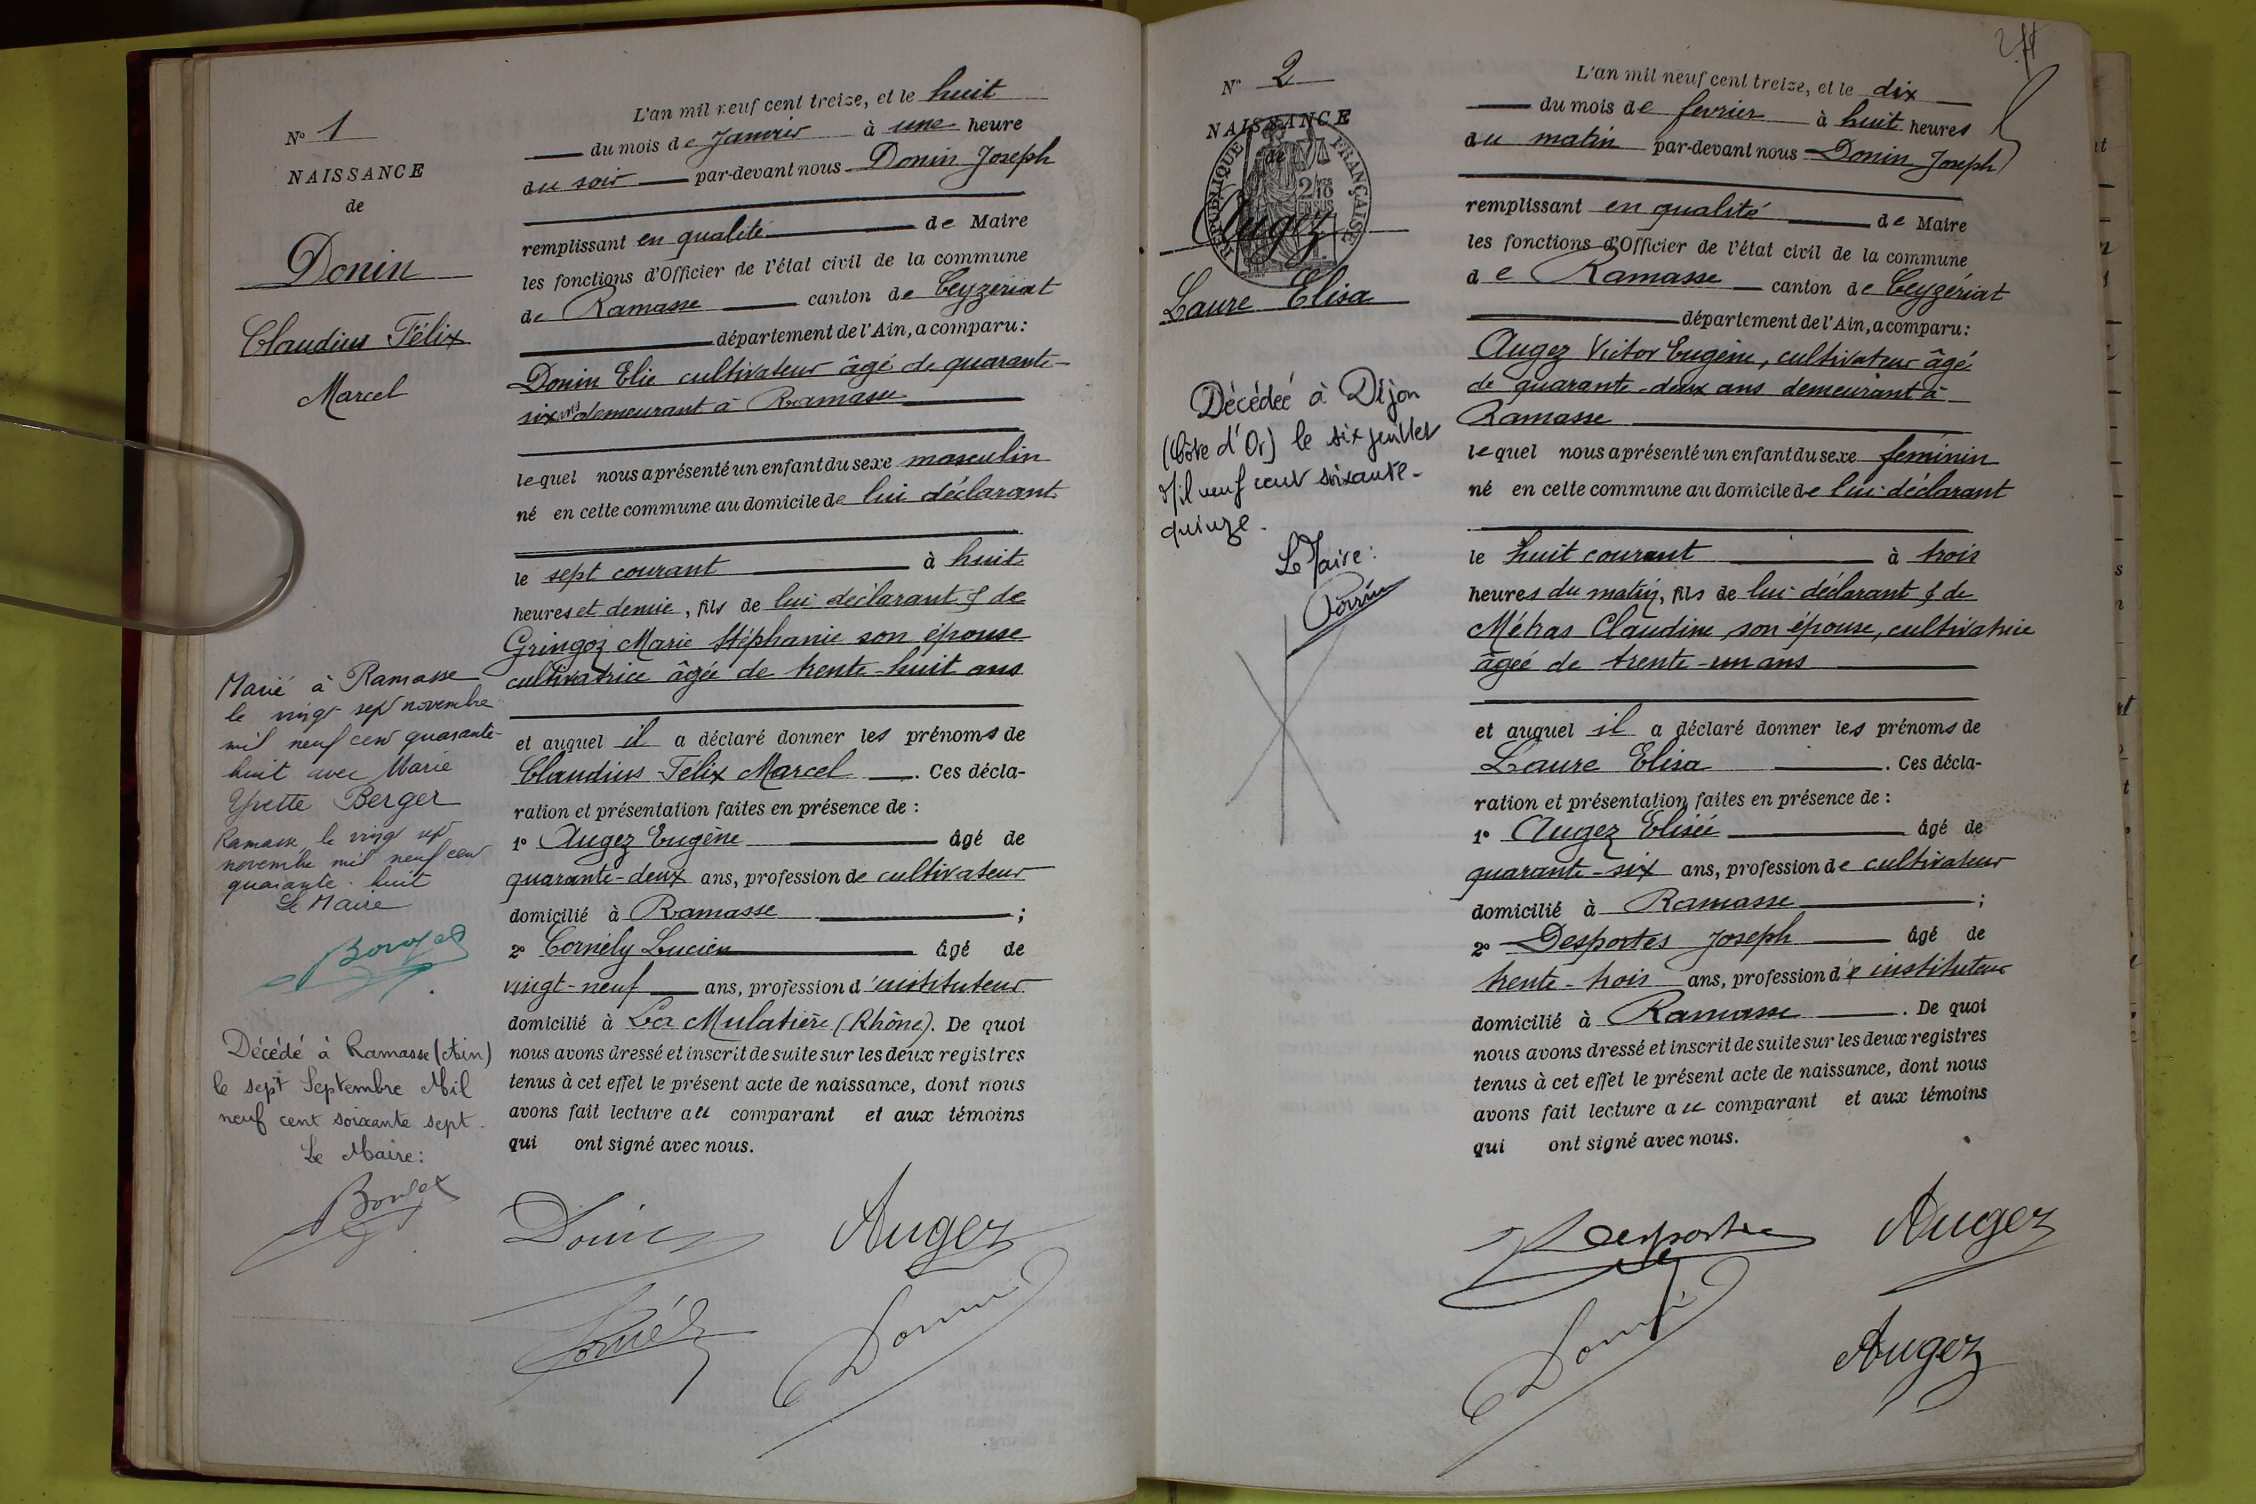 N° 1
NAISSANCE
de
Donin
Claudius Félix
Marcel
Marié à Ramasse
le vingt sept novembre
mil neuf cent quarante-
huit avec Marie
Yvette Berger
Ramasse le vingt sept
novembre mil neuf cent
quarante-huit
Le Maire
Décédé à Ramasse (Ain)
le sept Septembre Mil
neuf cent soixante sept.
Le Maire:
L'an mil neuf cent treize, et le huit
du mois de Janvier à une heure
du soir par-devant nous Donin Joseph
remplissant en qualité de Maire
les fonctions d'Officier de l'état civil de la commune
de Ramasse canton de Ceyzériat
département de l'Ain, a comparu:
Donin Elie cultivateur âgé de quarante-
six ans demeurant à Ramasse
lequel nous a présenté un enfant du sexe masculin
né en cette commune au domicile de lui déclarant
le sept courant à huit
heures et demie, fils de lui déclarant & de
Gringoz Marie Stéphanie son épouse
cultivatrice âgée de trente-huit ans
et auquel il a déclaré donner les prénoms de
Claudius Félix Marcel. Ces décla-
ration et présentation faites en présence de :
1° Augez Eugène âgé de
quarante-deux ans, profession de cultivateur
domicilié à Ramasse ;
2° Cornély Lucien âgé de
vingt-neuf ans, profession d'instituteur
domicilié à La Mulatière (Rhône). De quoi
nous avons dressé et inscrit de suite sur les deux registres
tenus à cet effet le présent acte de naissance, dont nous
avons fait lecture au comparant et aux témoins
qui ont signé avec nous.
Donin Augez
Donin
N° 2
NAISSANCE
de
RÉPUBLIQUE FRANÇAISE
Augez
Laure Elisa
Décédée à Dijon
(Côte d'Or) le six juillet
Mil neuf cent soixante-
quinze.
Le Maire:
Perrin
L'an mil neuf cent treize, et le dix
du mois de fevrier à huit heures
du matin par-devant nous Donin Joseph
remplissant en qualité de Maire
les fonctions d'Officier de l'état civil de la commune
de Ramasse canton de Ceyzériat
département de l'Ain, a comparu:
Augez Victor Eugène, cultivateur âgé
de quarante-deux ans demeurant à
Ramasse
lequel nous a présenté un enfant du sexe féminin
né en cette commune au domicile de lui déclarant
le huit courant à trois
heures du matin, fils de lui déclarant & de
Métras Claudine son épouse, cultivatrice
âgée de trente-un ans
et auquel il a déclaré donner les prénoms de
Laure Elisa. Ces décla-
ration et présentation faites en présence de :
1° Augez Elisée âgé de
quarante-six ans, profession de cultivateur
domicilié à Ramasse ;
2° Desportes Joseph âgé de
trente-trois ans, profession d'instituteur
domicilié à Ramasse. De quoi
nous avons dressé et inscrit de suite sur les deux registres
tenus à cet effet le présent acte de naissance, dont nous
avons fait lecture au comparant et aux témoins
qui ont signé avec nous.
Desportes Augez
Donin
Augez